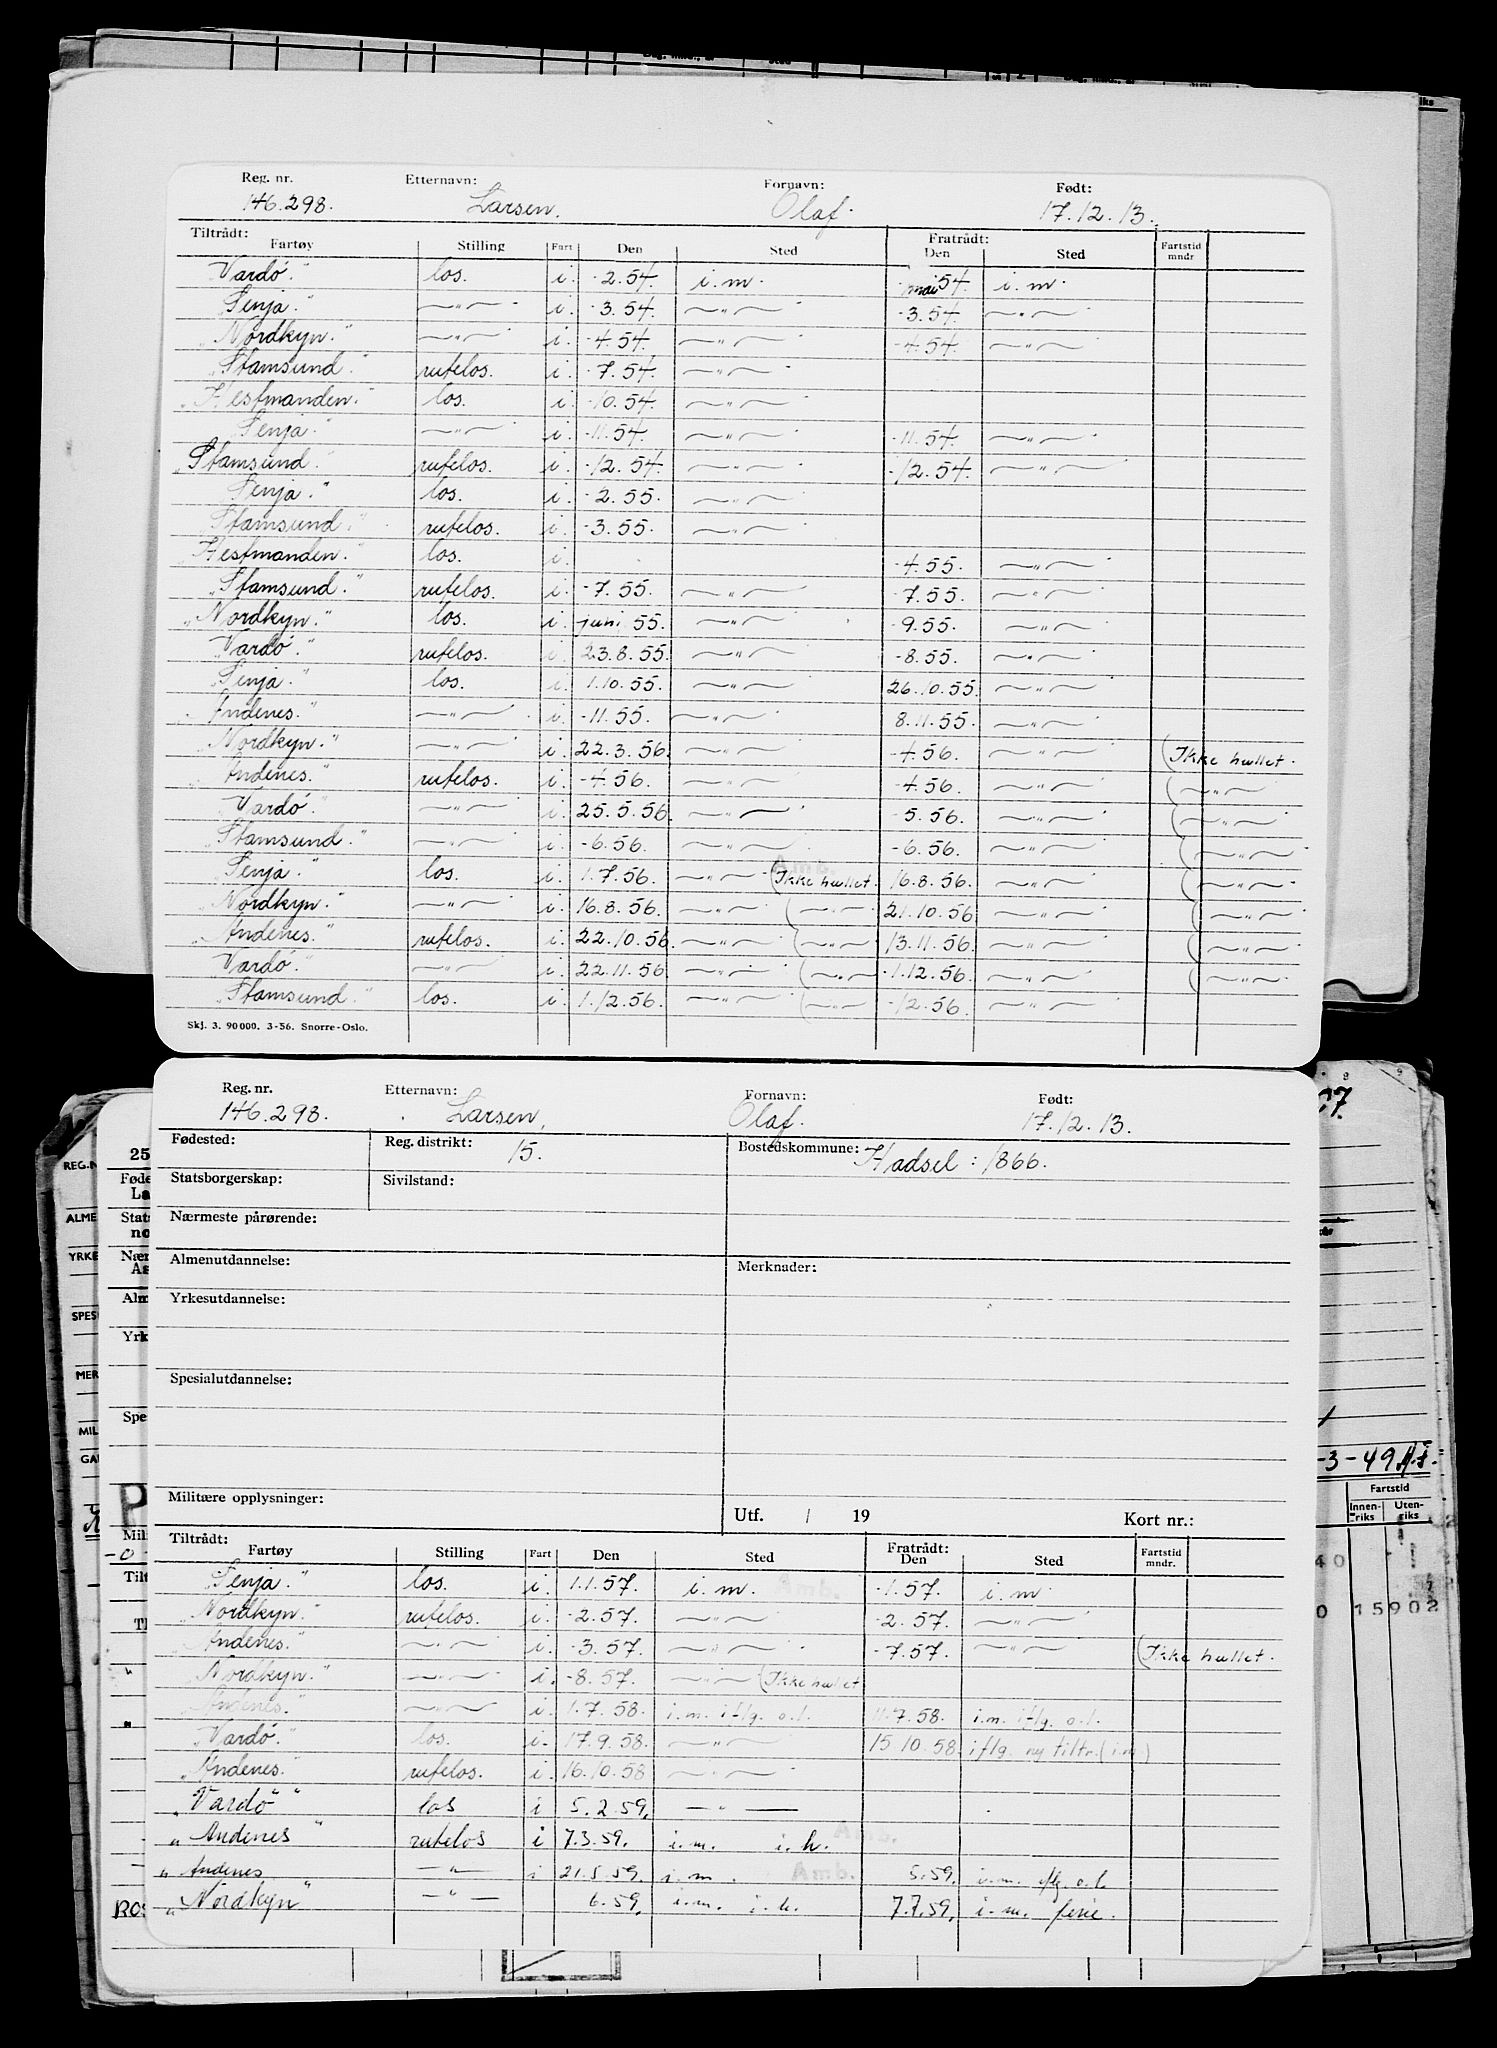 Reg. nr. Etternavn: Fornavn: Født:
146.298. Larsen. Olaf. 17.12.13.
Tiltrådt: Fratrådt:
Fartøy Stilling Fart Den Sted Den Sted Fartstid mndr
"Vardö." los. i. -2.54. i.m. mai 54 i.m.
"Senja." —"— i. -3.54. —"— -3.54. —"—
"Nordkyn." —"— i. -4.54. —"— -4.54. —"—
"Stamsund." rutelos. i. -7.54. —"—
"Hestmanden." los. i. -10.54. —"—
"Senja." —"— i. -11.54. —"— -11.54. —"—
"Stamsund." rutelos. i. -12.54. —"— -12.54. —"—
"Senja." los. i. -2.55. —"—
"Stamsund." rutelos. i. -3.55. —"—
"Hestmanden." los. i. -4.55. —"—
"Stamsund." rutelos. i. -7.55. —"— -7.55. —"—
"Nordkyn." los. i. juni 55. —"— -9.55. —"—
"Vardö." rutelos. i. 23.8.55. —"— -8.55. —"—
"Senja." los. i. 1.10.55. —"— 26.10.55. —"—
"Andenes." —"— i. -11.55. —"— 8.11.55. —"—
"Nordkyn." —"— i. 22.3.56. —"— -4.56. —"— (Ikke hullet.
"Andenes." rutelos. i. -4.56. —"— -4.56. —"— (—"—
"Vardö." —"— i. 25.5.56. —"— -5.56. —"— (—"—
"Stamsund." —"— i. -6.56. —"— -6.56. —"— (—"—
"Senja." los. i. 1.7.56. —"— (Ikke hullet. 16.8.56. —"— (—"—
"Nordkyn." —"— i. 16.8.56. —"— (—"— 21.10.56 —"— (—"—
"Andenes." rutelos. i. 22.10.56. —"— (—"— 13.11.56. —"— (—"—
"Vardö." —"— i. 22.11.56. —"— (—"— -1.12.56. —"— (—"—
"Stamsund." los. i. 1.12.56. —"— (—"— -12.56. —"—
Skj. 3. 90 000. 3-56. Snorre-Oslo.
Reg. nr. Etternavn: Fornavn: Født:
146.298. Larsen, Olaf. 17.12.13.
Fødested: Reg. distrikt: 15. Bostedskommune: Hadsel: 1866.
Statsborgerskap: Sivilstand:
Nærmeste pårørende:
Almenutdannelse: Merknader:
Yrkesutdannelse:
Spesialutdannelse:
Militære opplysninger:
Utf. / 19 Kort nr.:
Tiltrådt: Fratrådt:
Fartøy Stilling Fart Den Sted Den Sted Fartstid mndr.
"Senja." los. i. 1.1.57. i.m. Amb. -1.57. i.m.
"Nordkyn." rutelos. i. -2.57. —"— -2.57. —"—
"Andenes." —"— i. -3.57. —"— -7.57. —"— (Ikke hullet.
"Nordkyn." —"— i. -8.57. —"— (Ikke hullet
"Andenes." —"— i. 1.7.58. i.m. iflg. o.l. 11.7.58. i.m. iflg. o.l.
"Vardö." los. i. 17.9.58. —"— 15.10.58. iflg. ny tiltr. (i.m)
"Andenes." rutelos. i. 16.10.58 —"—
"Vardö" los i 5.2.59. —"—
"Andenes" rutelos i 7.3.59. i.m. i.h. Amb.
"Andenes —"— i 21.5.59. i.m. Amb. 5.59. i.m. iflg. o.l
"Nordkyn" —"— 6.59. i.m. i.h. 7.7.59. i.m. ferie.
-3-49
Fartstid
Innen-riks Uten-riks
40
0 15902
REG.N
ALME
YRKE
SPES
MER
MIL
25
Føde
La
Stats
Nær
As
Alm
Yrk
Spe
Mili
Tilt